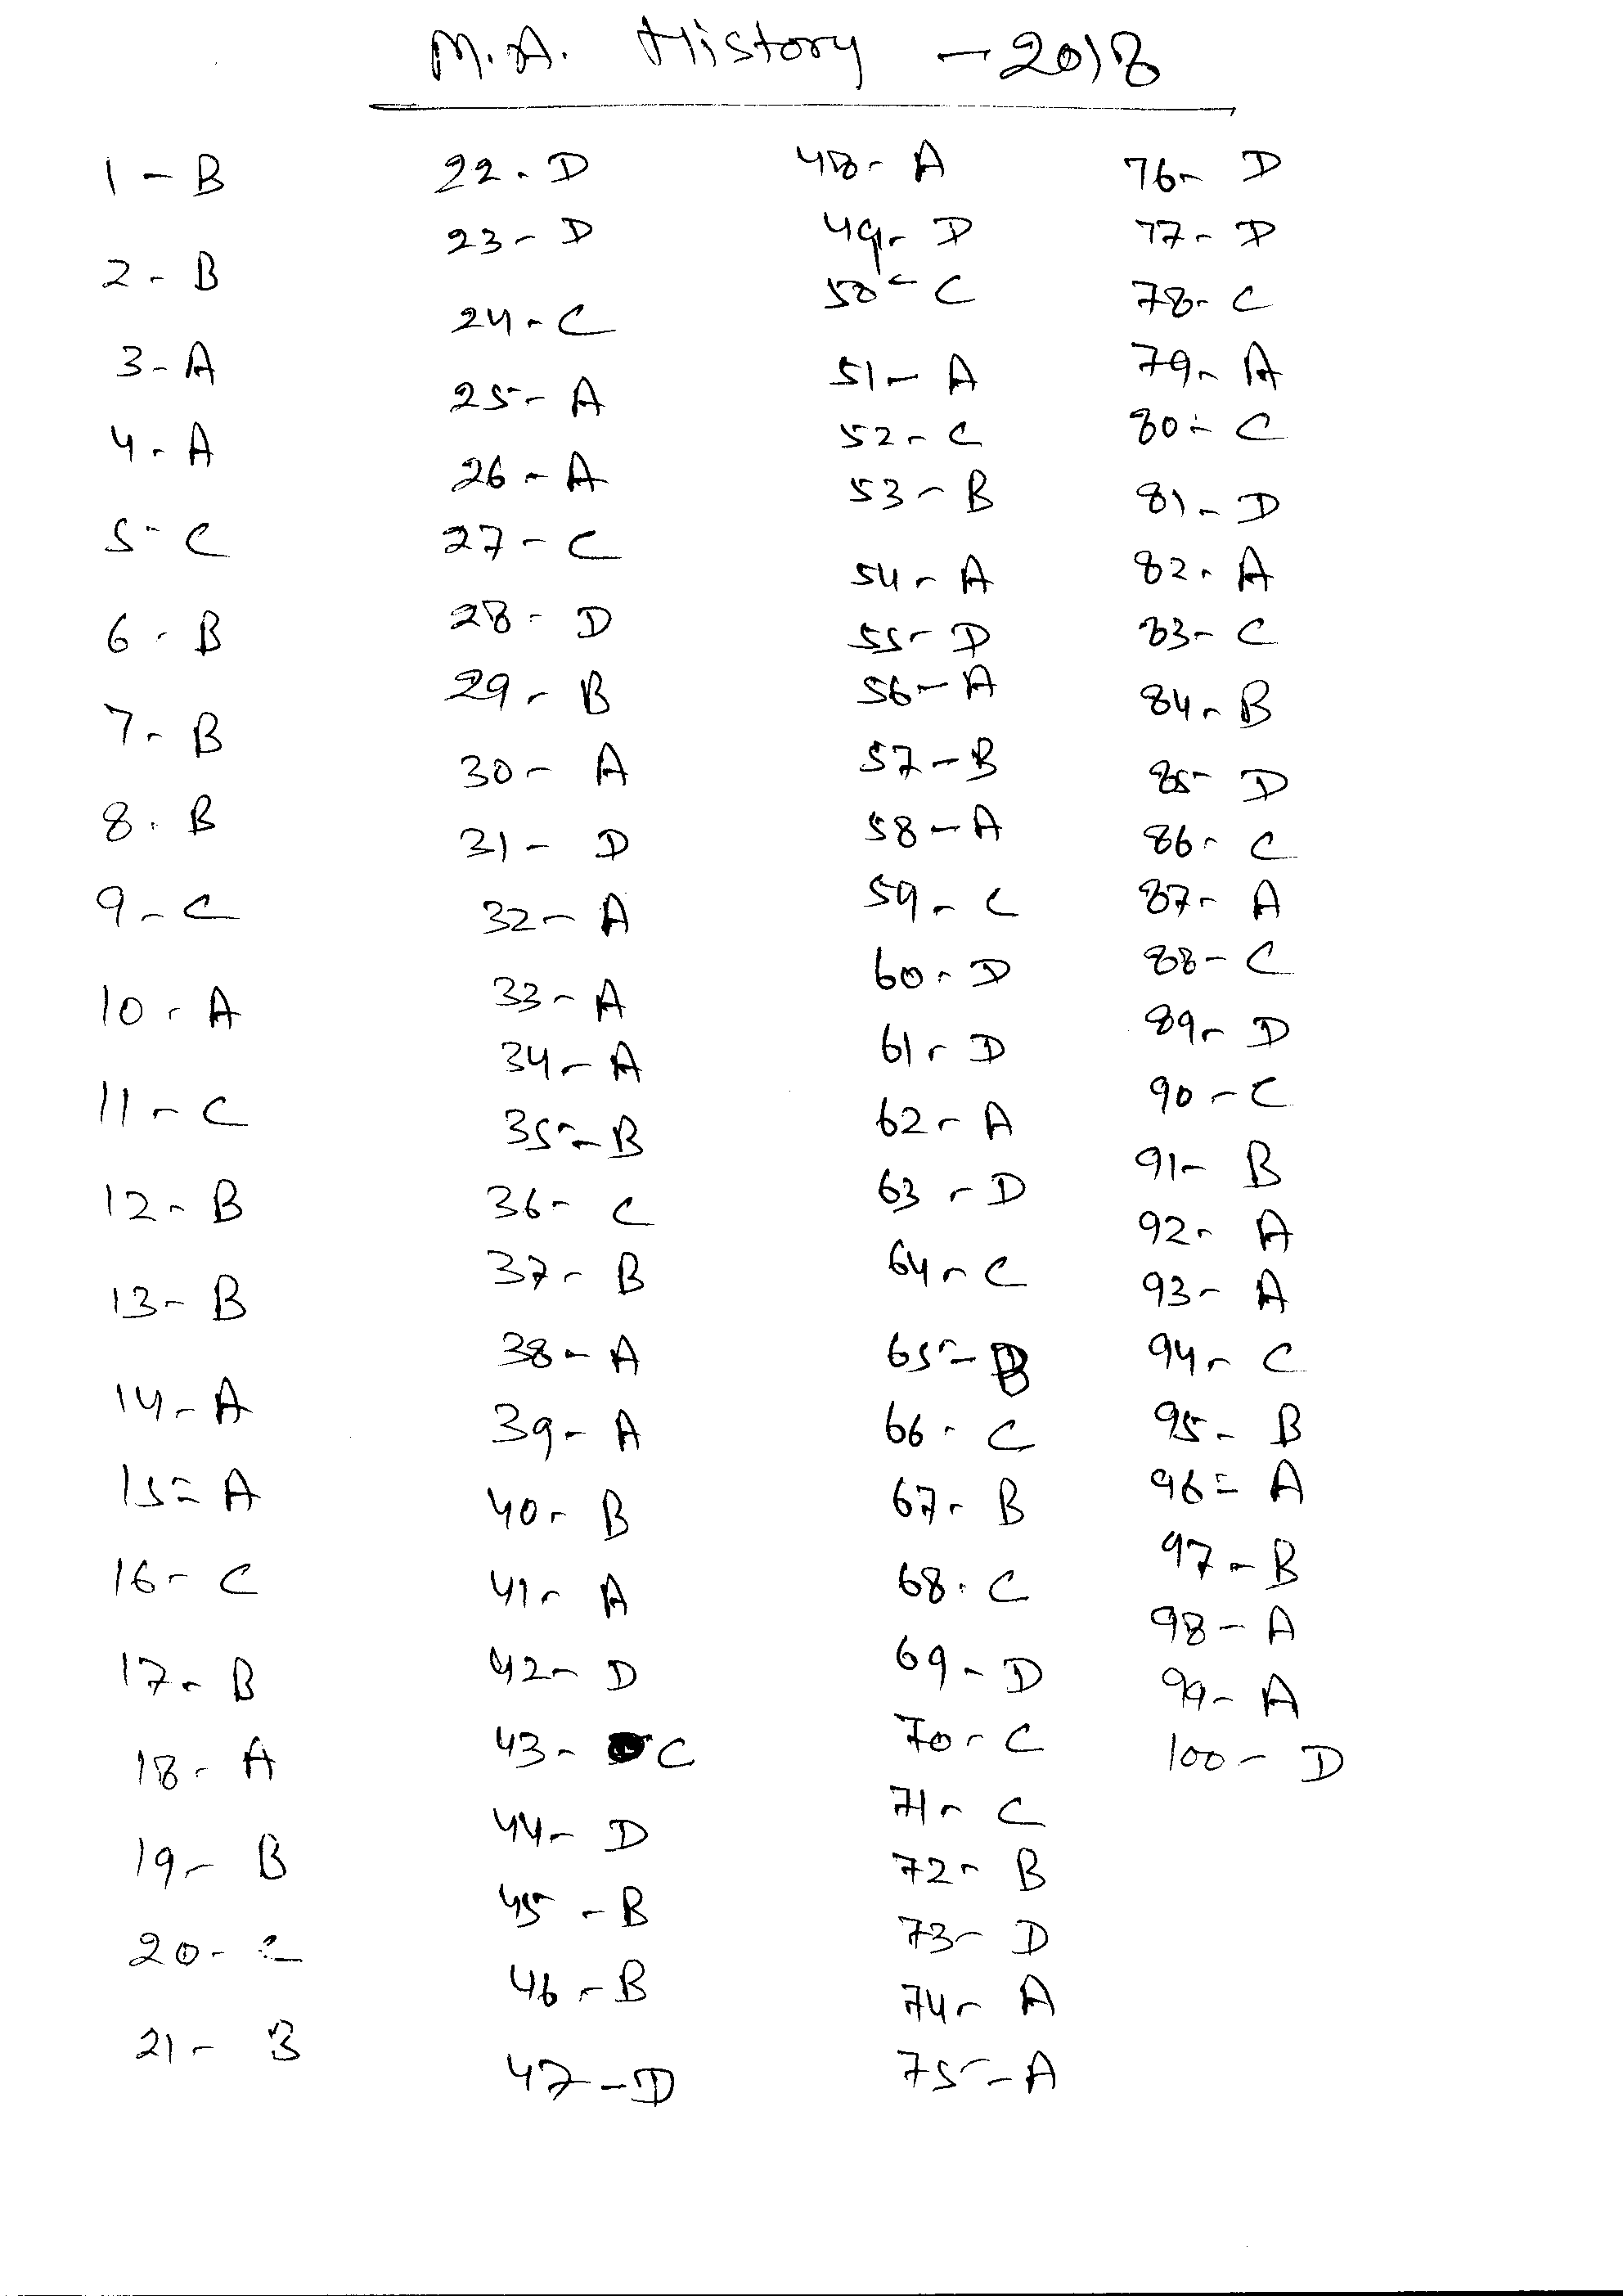 M.A. History - 2018
1 - B
2 - B
3 - A
4 - A
5 - C
6 - B
7 - B
8 - B
9 - C
10 - A
11 - C
12 - B
13 - B
14 - A
15 - A
16 - C
17 - B
18 - A
19 - B
20 - C
21 - B
22 - D
23 - D
24 - C
25 - A
26 - A
27 - C
28 - D
29 - B
30 - A
31 - D
32 - A
33 - A
34 - A
35 - B
36 - C
37 - B
38 - A
39 - A
40 - B
41 - A
42 - D
43 - C
44 - D
45 - B
46 - B
47 - D
48 - A
49 - D
50 - C
51 - A
52 - C
53 - B
54 - A
55 - D
56 - A
57 - B
58 - A
59 - C
60 - D
61 - D
62 - A
63 - D
64 - C
65 - B
66 - C
67 - B
68 - C
69 - D
70 - C
71 - C
72 - B
73 - D
74 - A
75 - A
76 - D
77 - D
78 - C
79 - A
80 - C
81 - D
82 - A
83 - C
84 - B
85 - D
86 - C
87 - A
88 - C
89 - D
90 - C
91 - B
92 - A
93 - A
94 - C
95 - B
96 - A
97 - B
98 - A
99 - A
100 - D